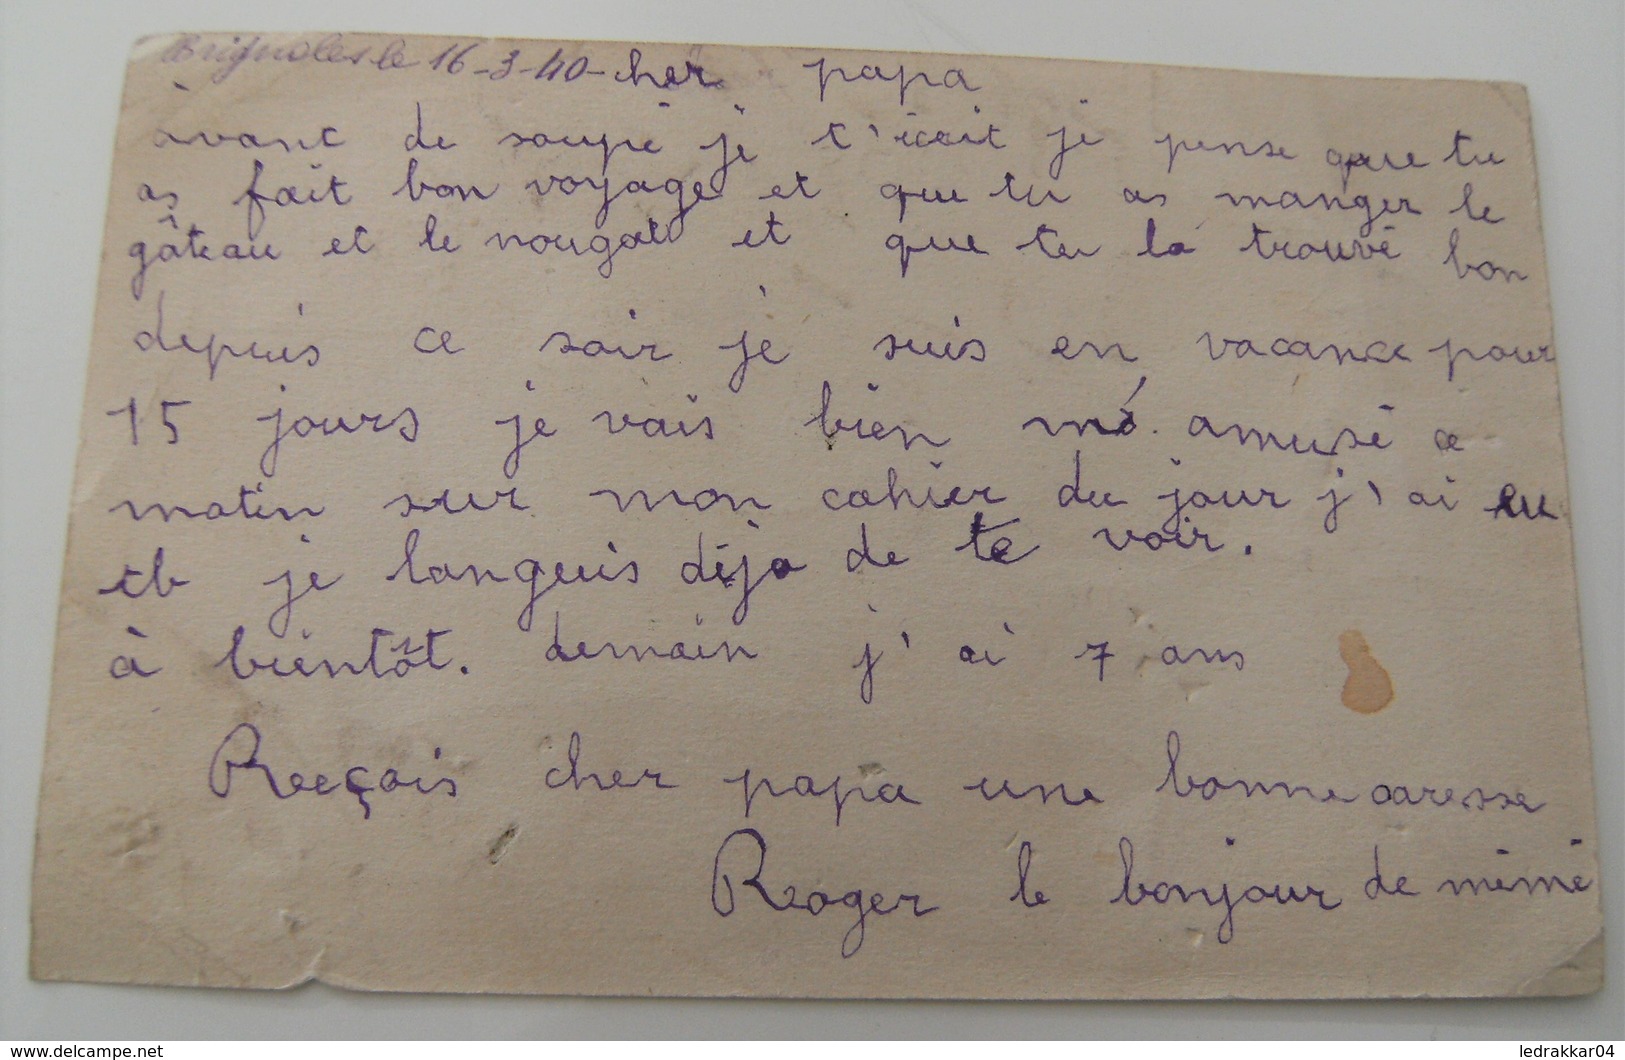 Brignoles le 16-3-40- cher papa
avant de soupé je t'écrit je pense que tu
as fait bon voyage et que tu as manger le
gâteau et le nougat et que tu la trouvé bon
depuis ce soir je suis en vacance pour
15 jours je vais bien mé amusé ce
matin sur mon cahier du jour j'ai eu
tb je languis déja de te voir.
à bientôt. demain j'ai 7 ans
Reçois cher papa une bonne caresse
Roger le bonjour de mémé
www.delcampe.net
ledrakkar04